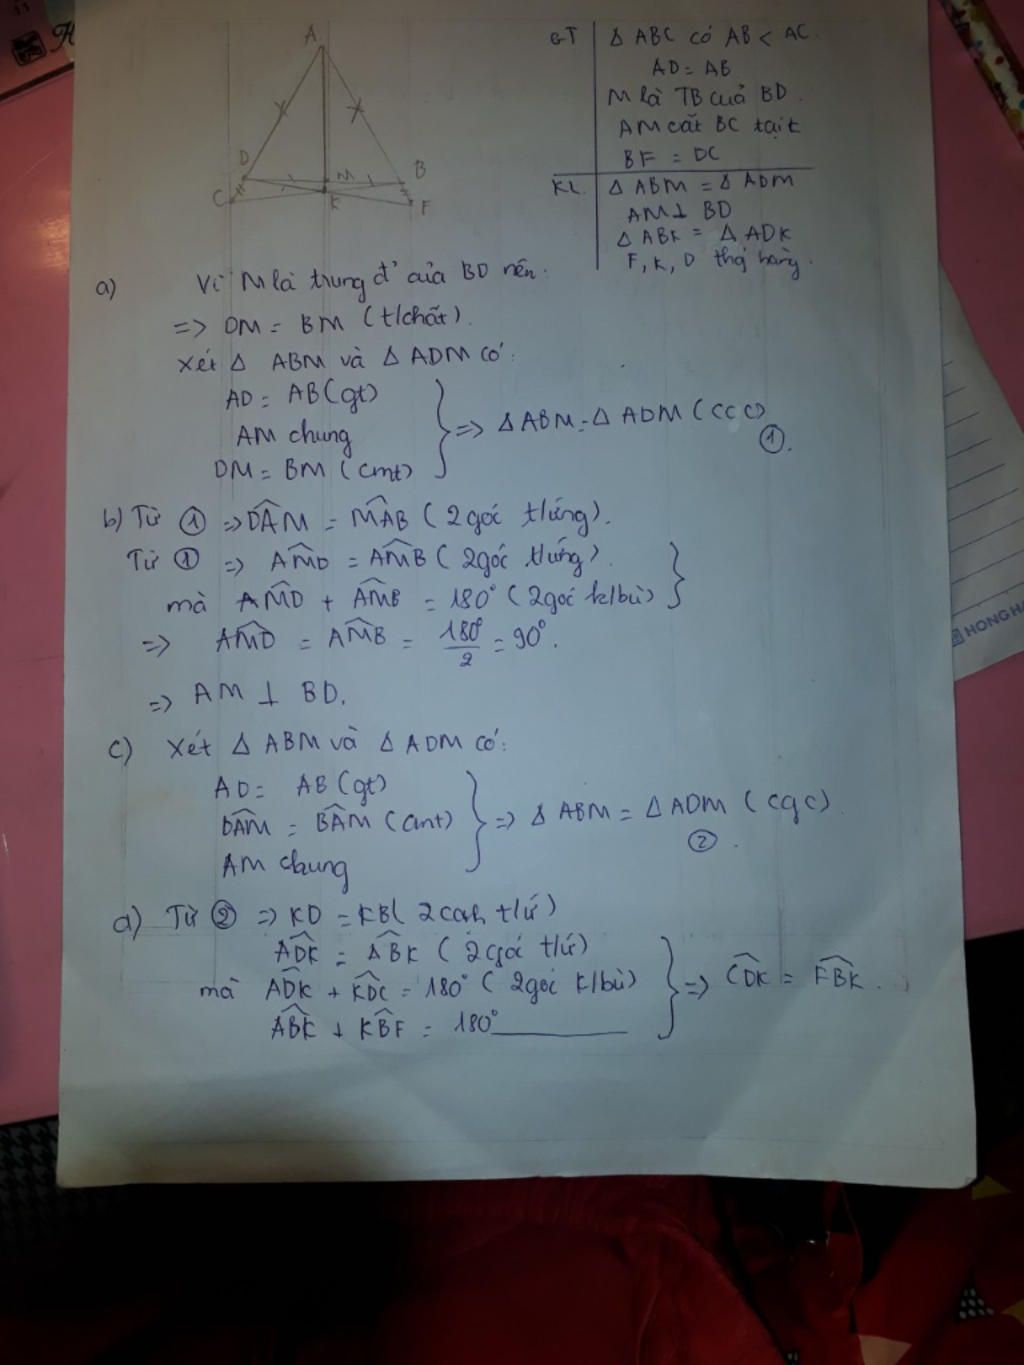 11
A
D
M
B
C
K
F
GT | Δ ABC có AB < AC.
AD = AB
M là TB của BD.
AM cắt BC tại t
BF = DC
KL. | Δ ABM = Δ ADM
AM ⊥ BD
Δ ABK = Δ ADK
F, K, D thg hàng.
a) Vì M là trung đ' của BD nên:
=> DM = BM (t/chất).
Xét Δ ABM và Δ ADM có:
AD = AB (gt)
AM chung
DM = BM (cmt)
=> Δ ABM = Δ ADM (ccc)
①.
b) Từ ① => DÂM = MÂB (2 góc t/ứng).
Từ ① => AM̂D = AM̂B (2 góc t/ứng).
mà AM̂D + AM̂B = 180° (2 góc k/bù)
=> AM̂D = AM̂B = 180°/2 = 90°.
=> AM ⊥ BD.
c) Xét Δ ABM và Δ ADM có:
AD = AB (gt)
DÂM = BÂM (cmt)
AM chung
=> Δ ABM = Δ ADM (cgc).
②.
d) Từ ② => KD = KB (2 cạh t/ứ)
AD̂K = AB̂K (2 góc t/ứ)
mà AD̂K + KD̂C = 180° (2 góc k/bù)
AB̂K + KB̂F = 180°
=> CD̂K = FB̂K.
HONG HA